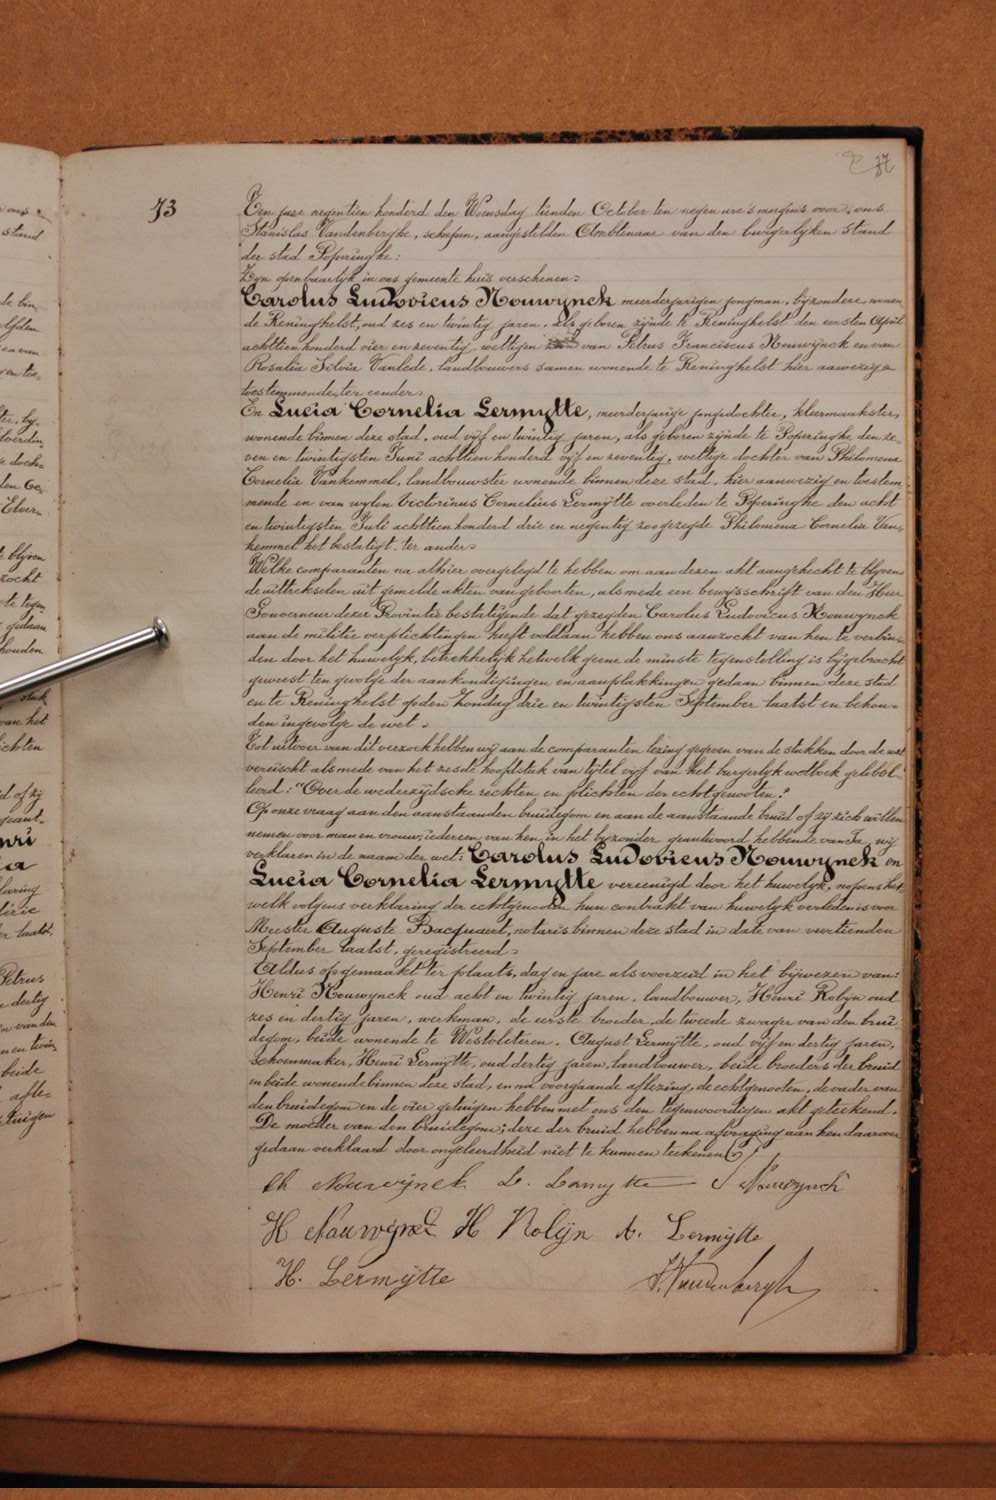 37
73
Ten jare negentien honderd den Woensdag tienden October ten negen ure 's morgens voor ons
Stanislas Vandenberghe, schepen, aangestelden Ambtenaar van den burgerlyken stand
der stad Poperinghe:
Zyn openbaarlyk in ons gemeente huis verschenen:
Carolus Ludovicus Nouwynck meerderjarigen jongman, byzondere, wonen
de Reninghelst, oud zes en twintig jaren, als geboren zynde te Reninghelst den eersten April
achttien honderd vier en zeventig wettigen van Petrus Franciscus Nouwynck en van
Rosalia Silvia Vanlede, landbouwers samen wonende te Reninghelst hier aanwezig en
toestemmende, ter eender.
En Lucia Cornelia Lermytte, meerderjarige jongedochter, kleermaakster,
wonende binnen deze stad, oud vyf en twintig jaren, als geboren zynde te Poperinghe den ze-
ven en twintigsten Juni achttien honderd vyf en zeventig, wettige dochter van Philomena
Cornelia Vankemmel, landbouwster wonende binnen deze stad, hier aanwezig en toestem
mende en van wylen Victorinus Cornelius Lermytte overleden te Poperinghe den acht
en twintigsten Juli achttien honderd drie en negentig zoo gezegde Philomena Cornelia Van-
kemmel het bestatigt. ter ander.
Welke comparanten na alhier overgelegd te hebben om aan dezen akt aangehecht te blyven
de uittrekselen uit gemelde akten van geboorten, alsmede een bewysschrift van den Heer
Gouverneur dezer Provintie bestatigende dat gezegden Carolus Ludovicus Nouwynck
aan de militie verplichtingen heeft voldaan hebben ons aanzocht van hen te verbin-
den door het huwelyk, betrekkelyk hetwelk geene de minste tegenstelling is bygebracht
geweest ten gevolge der aankondigingen en aanplakkingen gedaan binnen deze stad
en te Reninghelst op den Zondag drie en twintigsten September laatst en behou-
den ingevolge de wet.
Tot uitvoer van dit verzoek hebben wy aan de comparanten lezing gegeven van de stukken door de wet
vereischt alsmede van het zesde hoofdstuk van tytel vyf van het burgerlyk wetboek getitel-
teerd: "Over de wederzydsche rechten en plichten der echtgenooten."
Op onze vraag aan den aanstaanden bruidegom en aan de aanstaande bruid of zy zich willen
nemen voor man en vrouw, iedereen van hen in het byzonder geantwoord hebbende van Ja, wy
verklaren in de naam der wet: Carolus Ludovicus Nouwynck en
Lucia Cornelia Lermytte vereenigd door het huwelyk, nopens het
welk volgens verklaring der echtgenooten hun contrakt van huwelyk verleden is voor
Meester Auguste Bacquaert, notaris binnen deze stad in date van viertienden
September laatst, geregistreerd.
Aldus opgemaakt ter plaats, dag en jare als voorzeid in het bywezen van:
Henri Nouwynck oud acht en twintig jaren, landbouwer, Henri Rolyn oud
zes en dertig jaren, werkman, de eerste broeder, de tweede zwager van den brui
degom, beide wonende te Westvleteren, August Lermytte, oud vyf en dertig jaren,
schoenmaker, Henri Lermytte, oud dertig jaren, landbouwer, beide broeders der bruid
en beide wonende binnen deze stad, en na voorgaande aflezing, de echtgenooten, de vader van
den bruidegom en de vier getuigen hebben met ons den tegenwoordigen akt geteekend.
De moeder van den bruidegom, deze der bruid hebben na afvraging aan hen daarover
gedaan verklaard door ongeleerdheid niet te kunnen teekenen.
Ch Nouwynck L. Lermytte Nouwynck
H Nouwynck H Rolyn A. Lermytte
H. Lermytte S. Vandenberghe